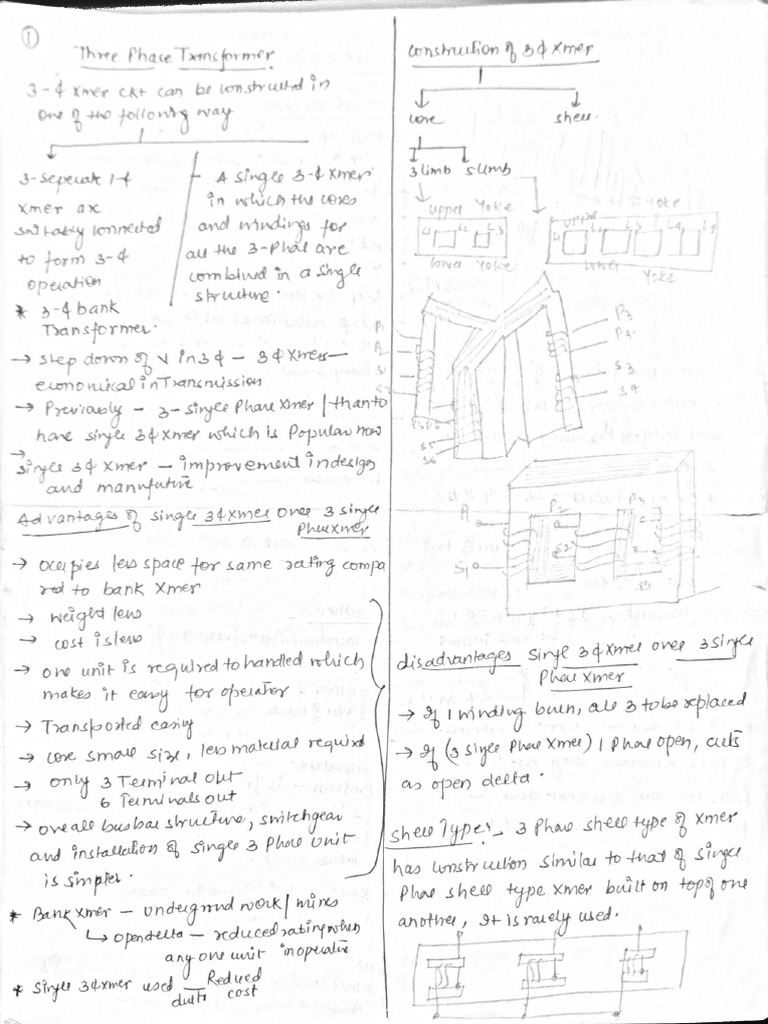 1
Three Phase Transformer
3-ϕ Xmer ckt can be constructed in
one of the following way
3-seperate 1-ϕ
xmer are
suitably connected
to form 3-ϕ
operation
- A single 3-ϕ Xmer
in which the cores
and windings for
all the 3-phase are
combined in a single
structure.
* 3-ϕ bank
Transformer.
→ step down of V in 3ϕ - 3ϕ Xmers -
economical in Transmission
→ Previously - 3-single Phase Xmer / than to
have single 3ϕ xmer which is Popular now
→
single 3ϕ xmer - improvement in design
and
Advantages of single 3ϕ xmer over 3 single
Phase xmer
→ occupies less space for same rating compa
red to bank Xmer
→ weight less
→ cost is less
→ one unit is required to handled which
makes it easy for operator
→ Transported easily
→ core small size, less material required
→ only 3 Terminal out
6 Terminals out
→ overall busbar structure, switchgear
and installation of single 3 Phase unit
is simpler.
* Bank Xmer - underground work / mines
↳ open delta - reduced rating when
any one unit inoperative
* Single 3ϕ xmer used - Reduced
cost
Construction of 3ϕ Xmer
core shell.
3 limb 5 limb
upper Yoke
L1 L2 L3
lower Yoke
upper Yoke
L1 L2 L3 L4 L5
lower Yoke
P1
P2
S1
S2
P3
P4
S3
S4
P5 P6
S5
S6
P1 P2 P3
S1 S2 S3
disadvantages Single 3ϕ xmer over 3 single
Phase xmer
→ If 1 winding burn, all 3 to be replaced
→ If (3 single Phase Xmer) 1 Phase open, acts
as open delta.
Shell Type:- 3 Phase shell type of Xmer
has construction similar to that of single
Phase shell type Xmer built on top of one
another, It is rarely used.